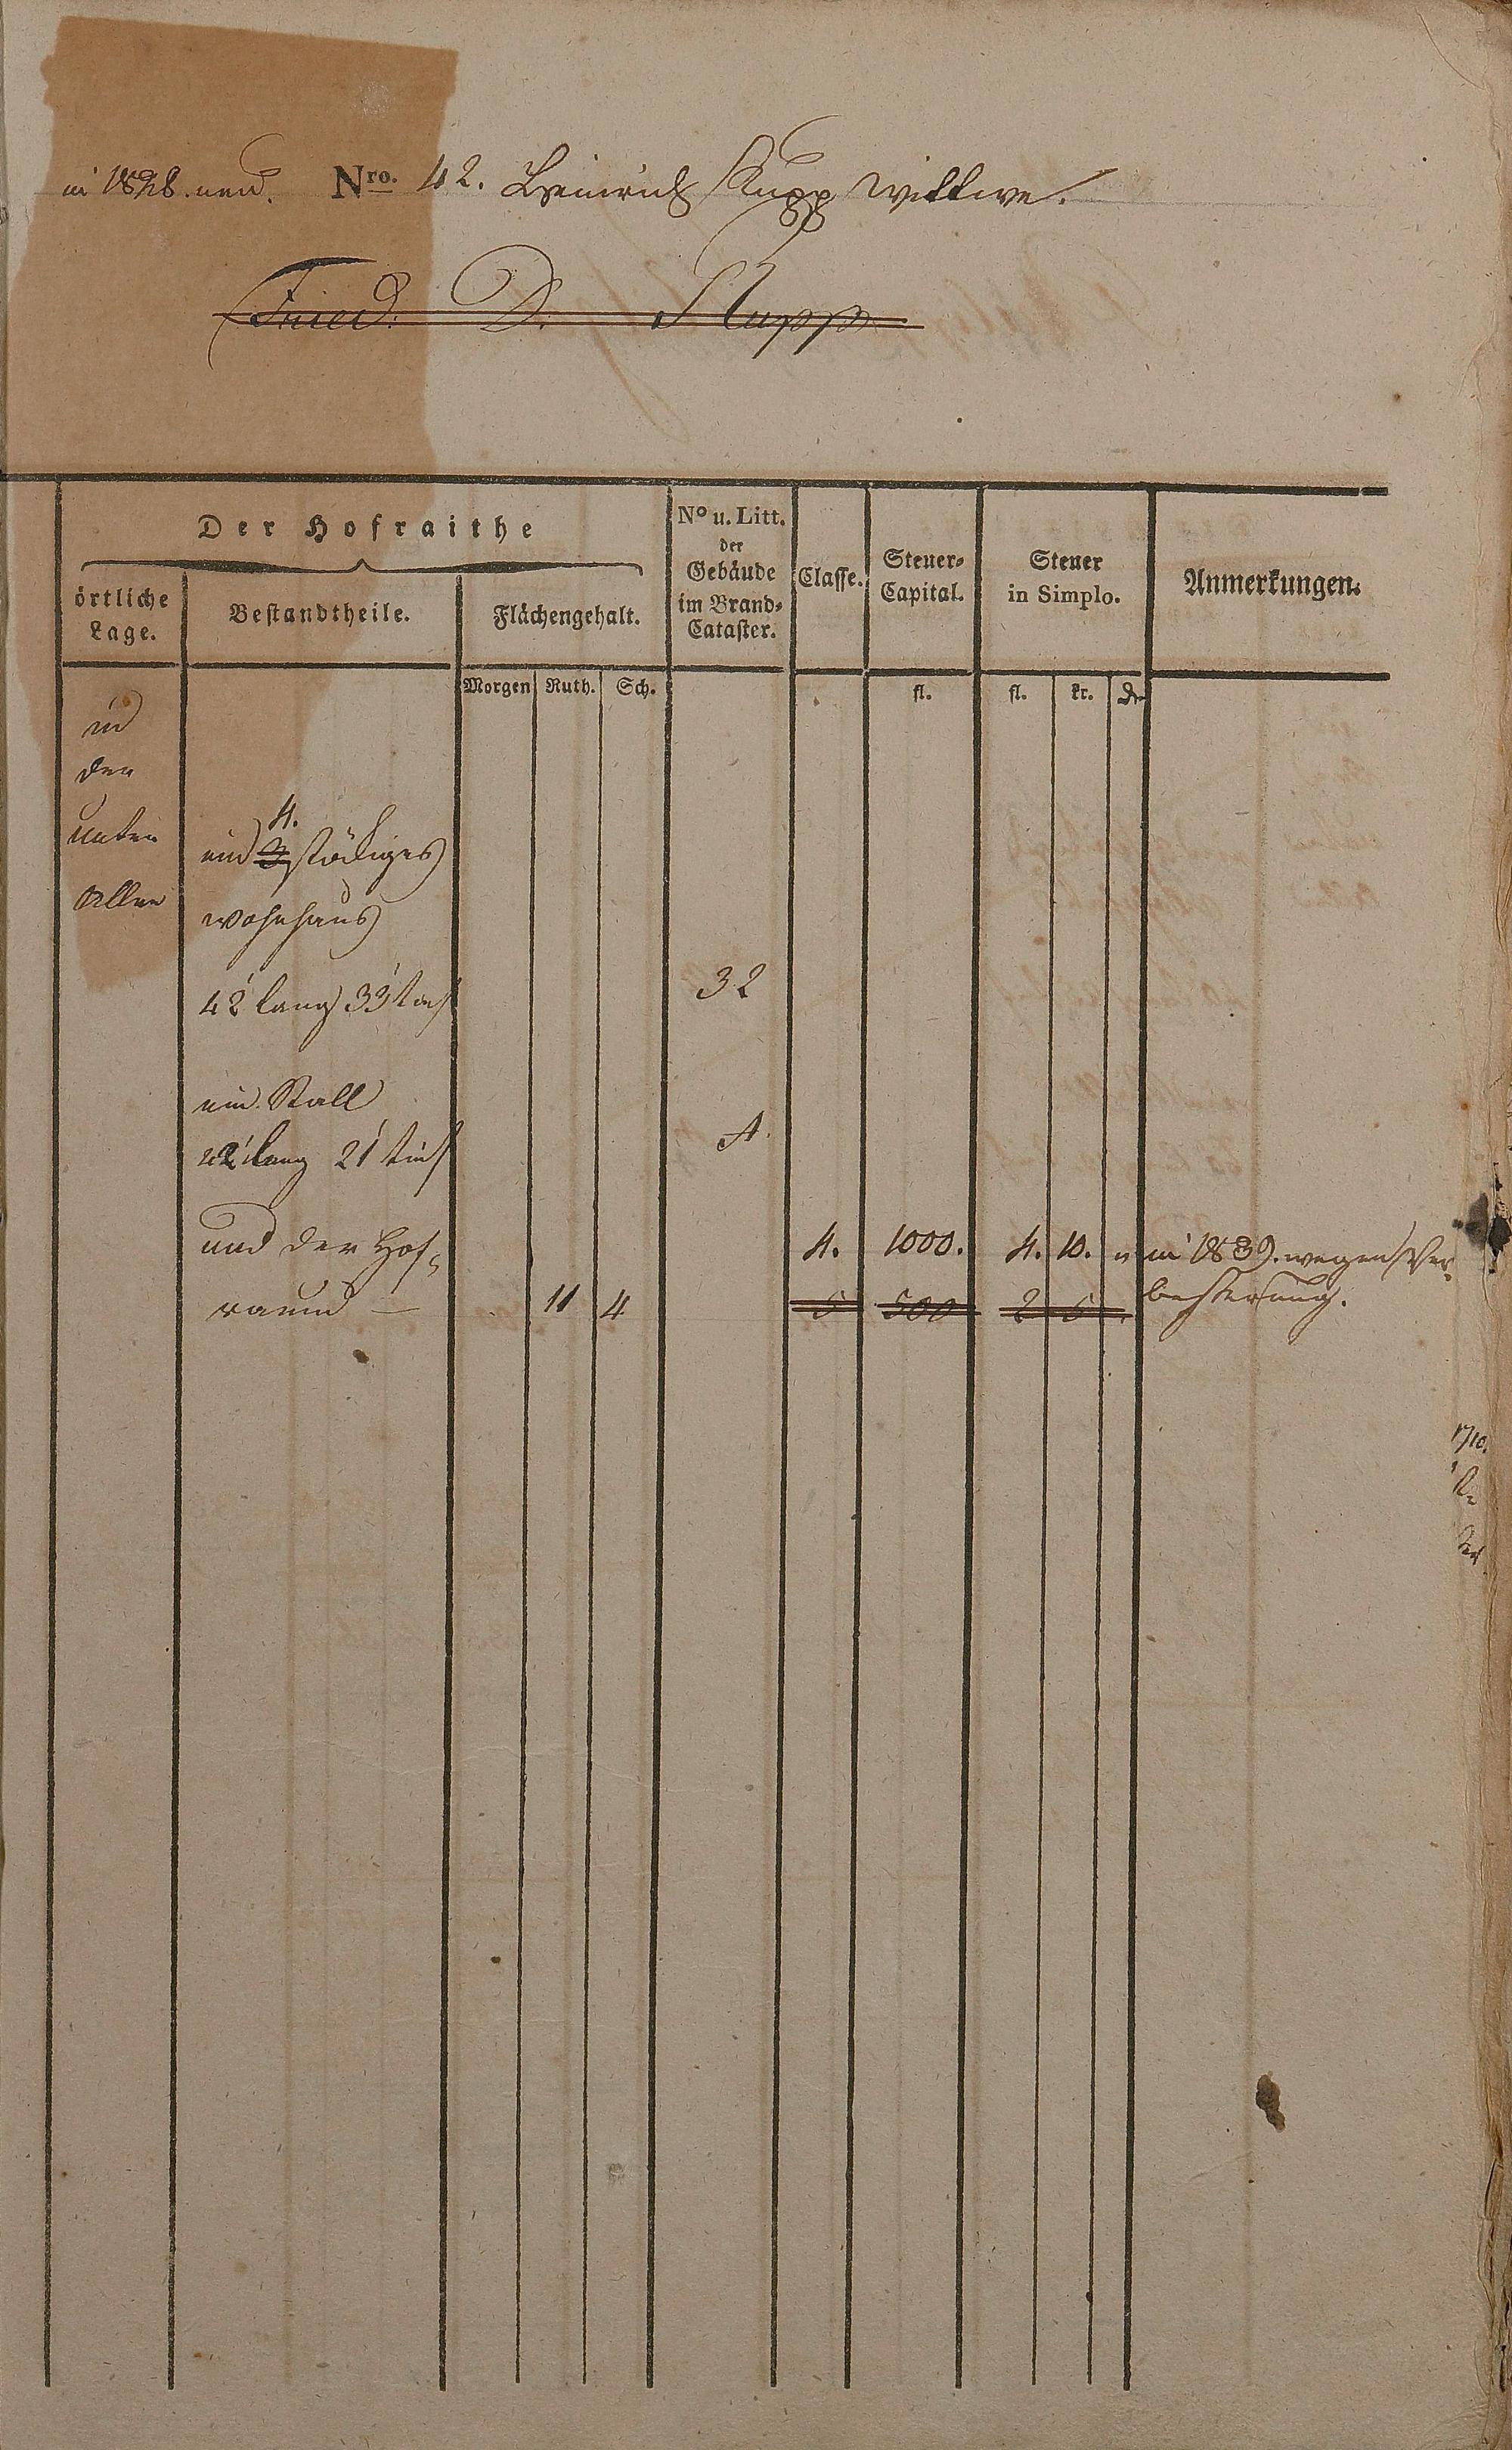 in 1828. neu. Nro. 42. Heinrich Kupp Wittwe.
Fried: D. Kupp
Der Hofraithe
örtliche
Lage.
Bestandtheile.
Flächengehalt.
No u. Litt.
der
Gebäude
im Brand-
Cataster.
Classe.
Steuer-
Capital.
Steuer
in Simplo.
Anmerkungen.
Morgen Ruth. Sch. fl. fl. kr.
in
der
unter
Allee
4.
ein 3 stöckiges
Wohnhaus
42' lang 33' tief 32
ein Stall
22' lang 21' tief A.
und der Hof-
raum — 11 4
4. 1000. 4. 10. " in 1839. wegen Ver-
5 500 2 5 besserung.